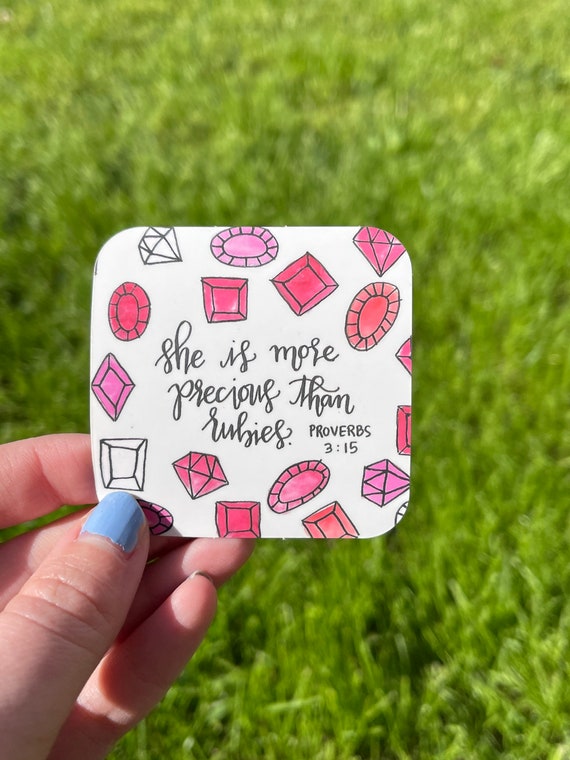 she is more
precious than
rubies.
PROVERBS
3:15